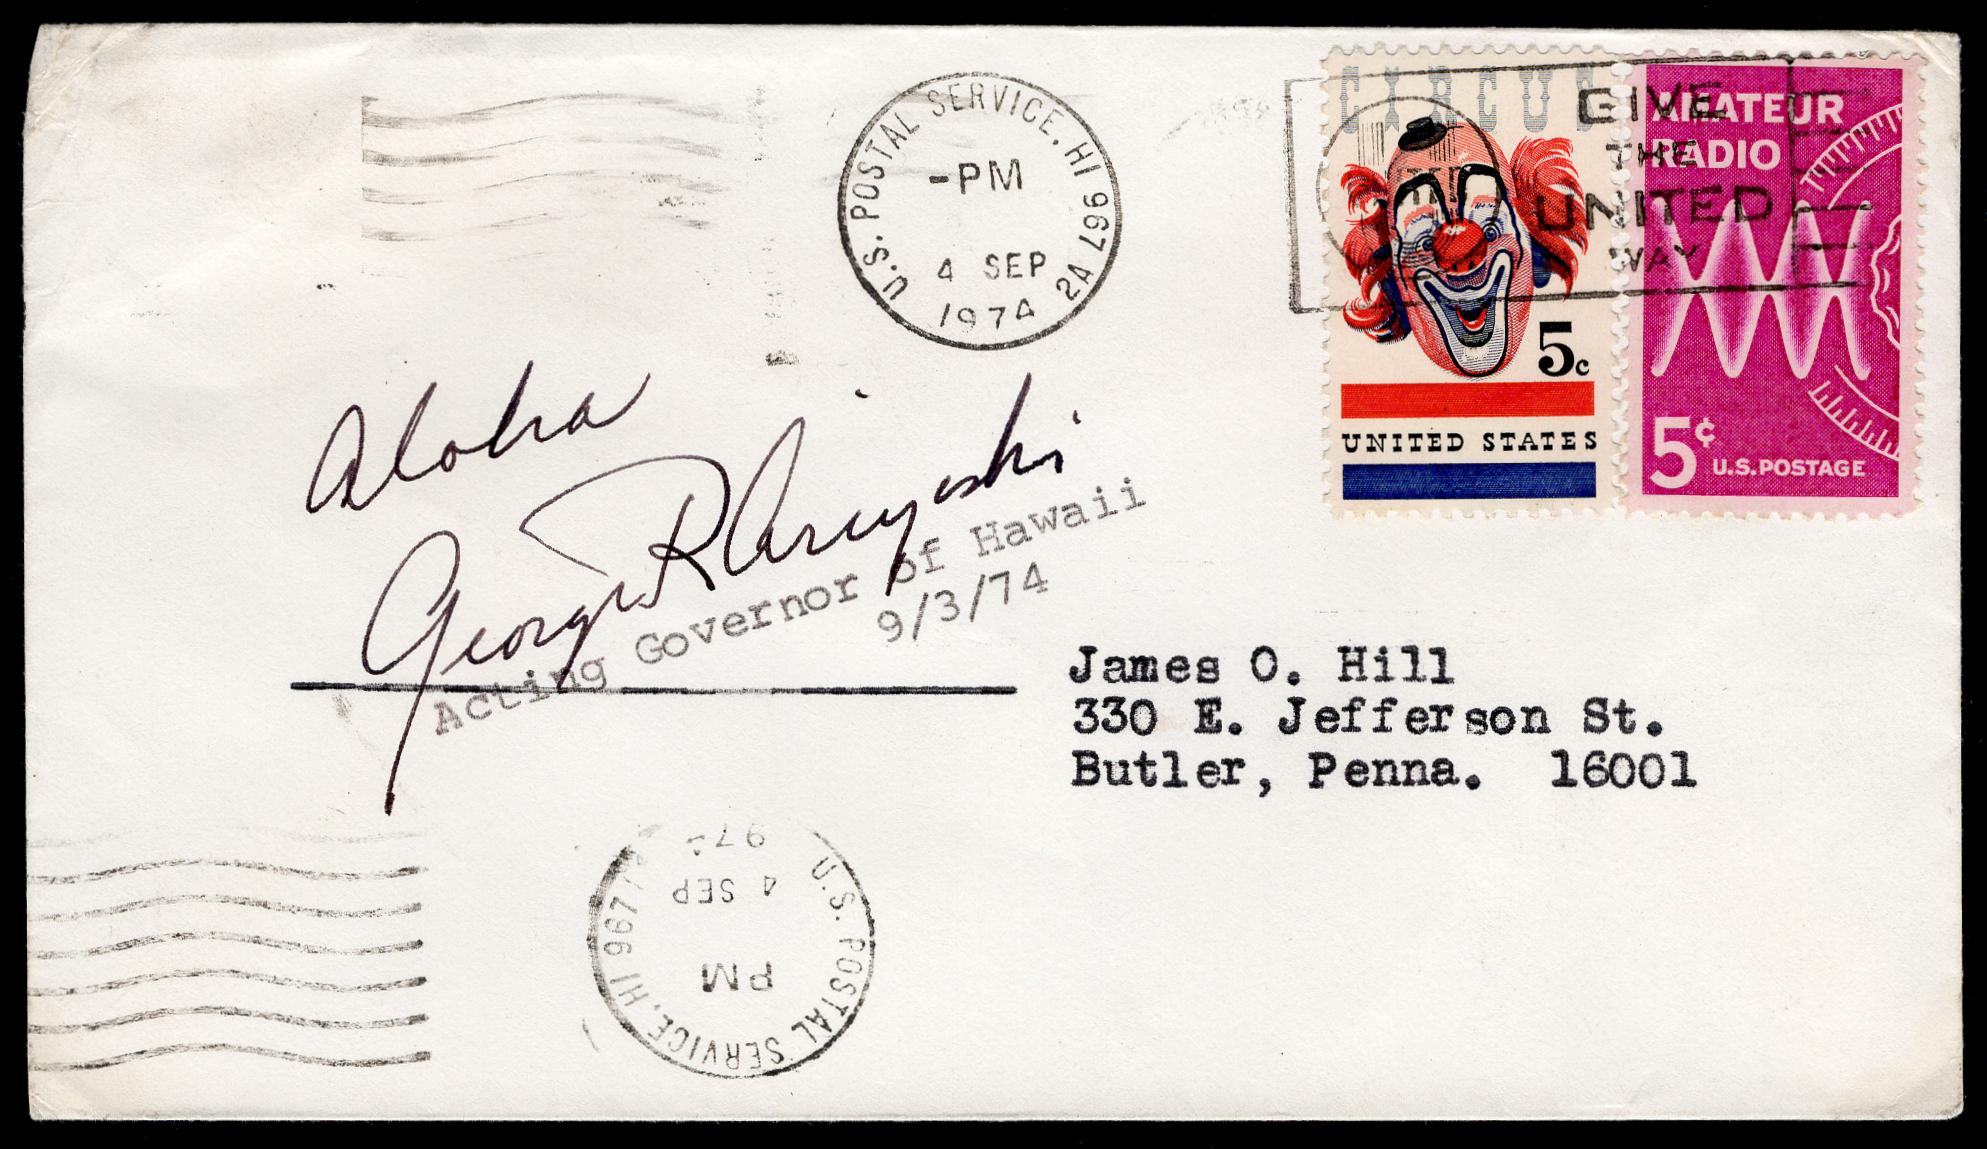 U.S. POSTAL SERVICE, HI 967 2A
-PM
4 SEP
1974
CIRCUS
5c
UNITED STATES
AMATEUR
RADIO
5¢ U.S.POSTAGE
GIVE
THE
UNITED
WAY
Aloha
George R Ariyoshi
Acting Governor of Hawaii
9/3/74
James O. Hill
330 E. Jefferson St.
Butler, Penna. 16001
U.S. POSTAL SERVICE, HI 967
PM
4 SEP